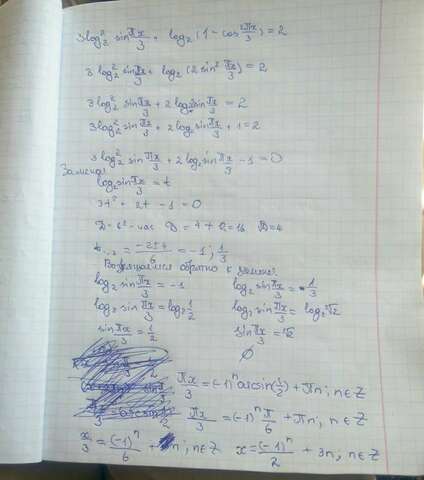 3log₂² sin πx/3 + log₂(1 - cos 2πx/3) = 2
3log₂² sin πx/3 + log₂(2 sin² πx/3) = 2
3log₂² sin πx/3 + 2log₂2sin πx/3 = 2
3log₂² sin πx/3 + 2log₂sin πx/3 + 1 = 2
3log₂² sin πx/3 + 2log₂ sin πx/3 - 1 = 0
Замена:
log₂ sin πx/3 = t
3t² + 2t - 1 = 0
D = 4 + 12 = 16 √D = 4
= -2±4/6 = -1; 1/3
Возвращаемся обратно к замене:
log₂ sin πx/3 = -1 log₂ sin πx/3 = 1/3
log₂ sin πx/3 = log₂ 1/2 log₂ sin πx/3 = log₂ ∛2
sin πx/3 = 1/2 sin πx/3 = ∛2
∅
πx/3 = (-1)ⁿ arcsin(1/2) + πn; n∈Z
πx/3 = (-1)ⁿ π/6 + πn; n∈Z
x/3 = (-1)ⁿ/6 + n; n∈Z x = (-1)ⁿ/2 + 3n; n∈Z